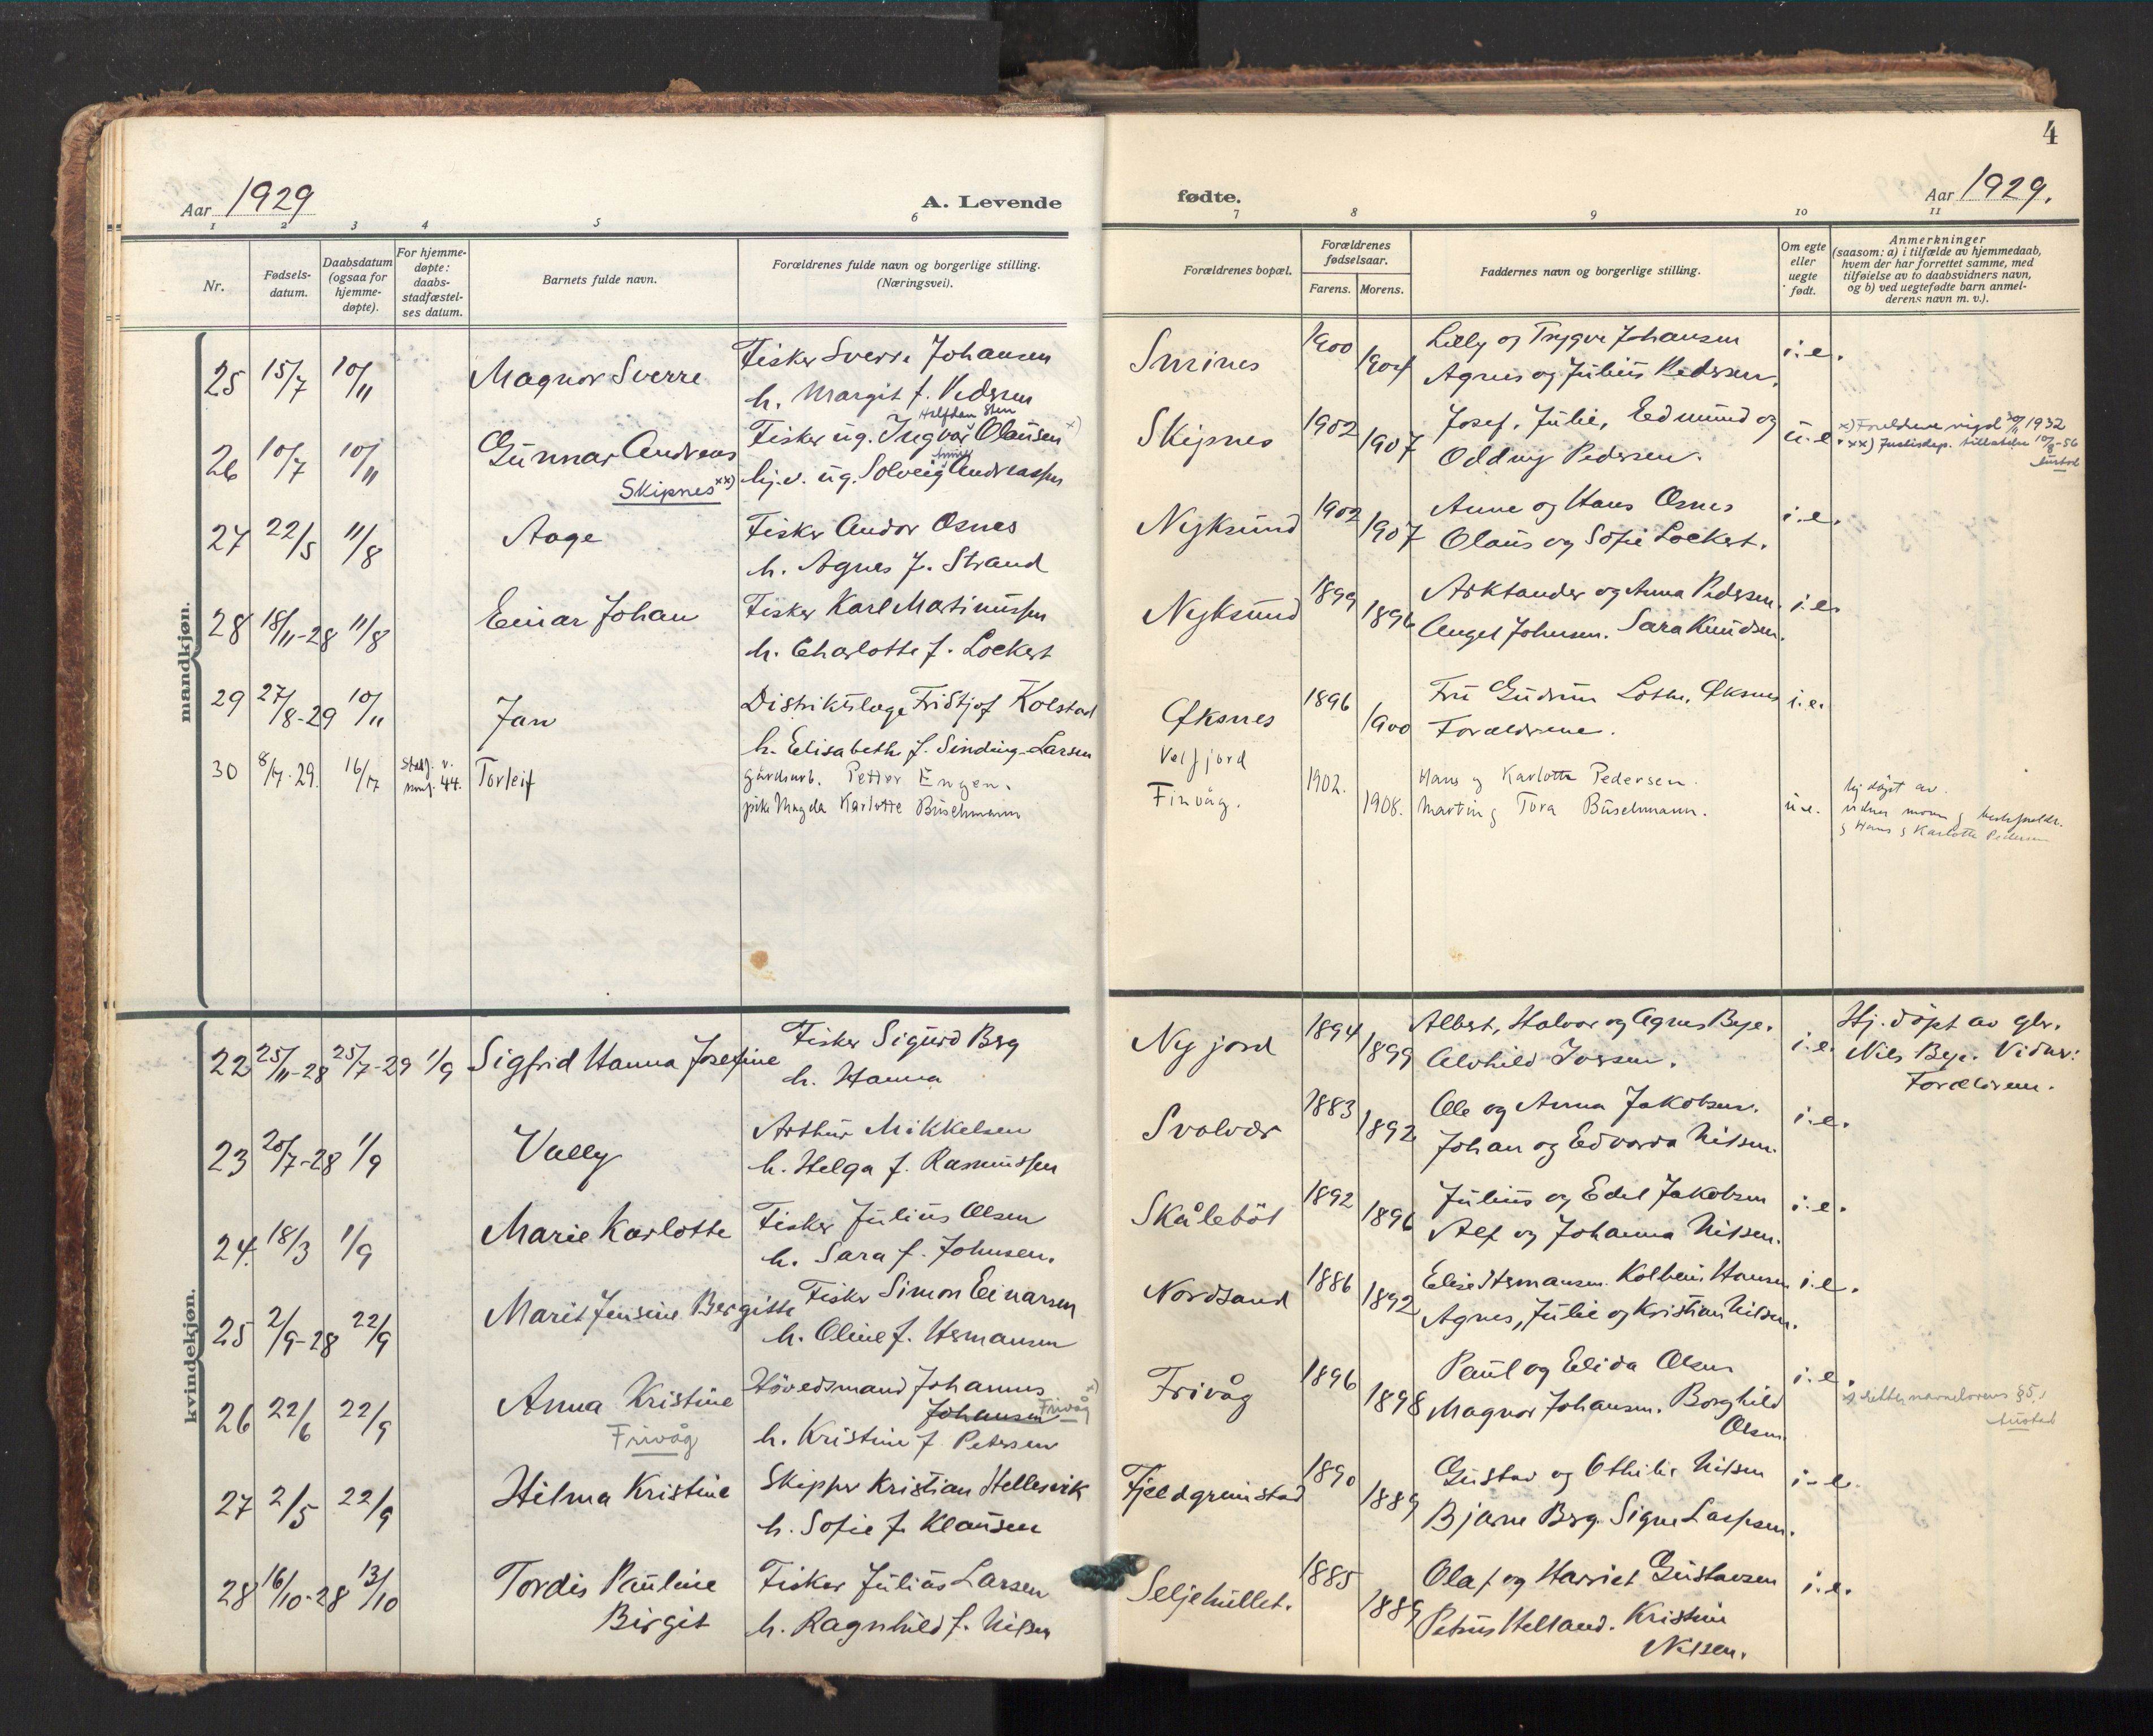 4
Aar 1929
A. Levende
fødte.
Aar 1929.
1 2 3 4 5 6 7 8 9 10 11
Nr.
Fødsels-
datum.
Daabsdatum
(ogsaa for
hjemme-
døpte).
For hjemme-
døpte:
daabs-
stadfæstel-
ses datum.
Barnets fulde navn.
Forældrenes fulde navn og borgerlige stilling.
(Næringsvei).
Forældrenes bopæl.
Forældrenes
fødselsaar.
Farens. Morens.
Faddernes navn og borgerlige stilling.
Om egte
eller
uegte
født.
Anmerkninger
(saasom: a) i tilfælde av hjemmedaab,
hvem der har forrettet samme, med
tilføielse av to daabsvidners navn,
og b) ved uegtefødte barn anmel-
derens navn m. v.).
mandkjøn.
25 15/7 10/11 Magnor Sverre Fisker Sverre Johansen
h. Margit f. Pedersen
Smines 1900 1904 Lilly og Trygve Johansen i.e.
Agnes og Julius Pedersen.
26 10/7 10/11 Gunnar Andreas
Skipnes xx)
Halfdan Sten
Fisker ug. Ingvar Olausen x)
hj.v. ug. Solveig Andreassen
Skipnes 1902 1907 Josef, Julie, Edmund og u.e.
Oddny Pedersen.
x) Foreldrene vigd 1932
xx) Justisdep. tillatelse 10/8-56
27 22/5 11/8 Aage Fisker Andor Osnes
h. Agnes f. Strand
Nyksund 1902 1907 Anne og Hans Osnes i.e.
Olaus og Sofie Lockert.
28 18/11-28 11/8 Einar Johan Fisker Karl Matinussen
h. Charlotte f. Lockert
Nyksund 1899 1896 Arktander og Anna Pedersen. i.e.
Angel Johnsen. Sara Knudsen.
29 27/8-29 10/11 Jan Distriktslæge Fridtjof Kolstad
h. Elisabeth f. Sinding-Larsen
Øksnes 1896 1900 Fru Gudrun Lothe, Øksnes i.e.
Forældrene.
30 8/7.29. 16/17 Torleif
gårdsarb. Petter Engen.
pike Magda Karlotte Buschmann
Velfjord
Finvåg. 1902. 1908. Hans og Karlotte Pedersen.
Martin og Tora Buschmann. u.e.
hj døpt av.
og Hans og Karlotte Pedersen
kvindekjøn.
22 25/11-28 25/7-29 1/9 Sigfrid Hanna Josefine Fisker Sigurd Berg
h. Hanna
Nyjord 1894 1899 Albert, Halvor og Agnes Beye. i.e.
Alvhild Iversen.
Hj. døpt av gbr.
Nils Beye. Vidner:
Forældrene.
23 20/7-28 1/9 Vally Arthur Mikkelsen
h. Helga f. Rasmussen
Svolvær 1883 1892 Ole og Anna Jakobsen. i.e.
Johan og Edvarda Nilsen.
24. 18/3 1/9 Marie Karlotte Fisker Julius Olsen
h. Sara f. Johnsen.
Skålebøt 1892 1896 Julius og Edel Jakobsen i.e.
Alf og Johanna Nilsen.
25 2/9-28 22/9 Marit Jensine Bergitte Fisker Simon Einarsen
h. Oline f. Hermansen
Nordsand 1886 1892 Elise Hermansen. Kolbein Hansen i.e.
Agnes, Julie og Kristian Nilsen.
26 22/6 22/9 Anna Kristine
Frivåg
Høvedsmand Johannes
Johansen Frivåg x)
h. Kristine f. Petersen
Frivåg 1896 1898 Paul og Elida Olsen i.e.
Magnor Johansen. Borghild
Olsen
x) navnelovens §5,1
27 2/5 22/9 Hilma Kristine Skipper Kristian Hellesvik
h. Sofie f. Klausen
Fjeldgrimstad 1890 1889 Gustav og Othilie Nilsen i.e.
Bjarne Berg. Signe Larssen.
28 16/10-28 13/10 Tordis Pauline
Birgit
Fisker Julius Larsen
h. Ragnhild f. Nilsen
Seljehullet. 1885 1889 Olaf og Harriet Gustavsen i.e.
Petrus Helland. Kristine
Nilssen.